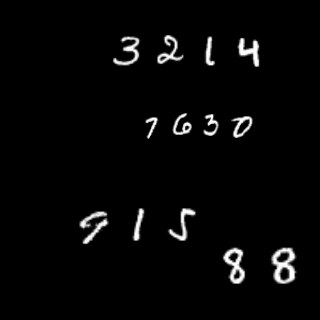 3214
7630
915
88